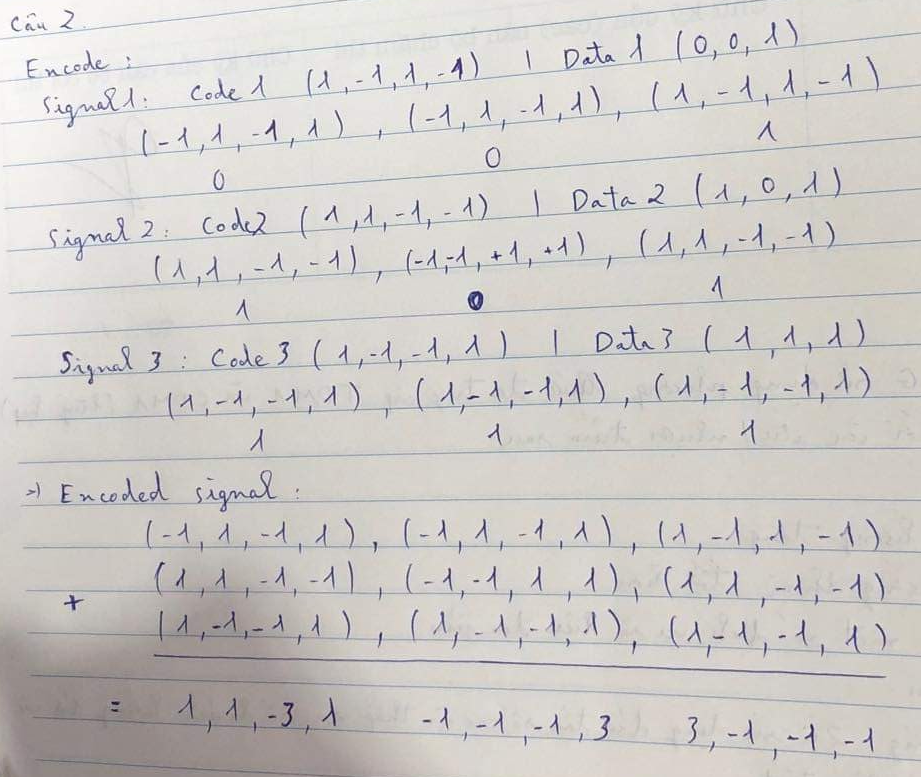 Câu 2.
Encode :
Signal 1: Code 1 (1, -1, 1, -1) | Data 1 (0, 0, 1)
(-1, 1, -1, 1), (-1, 1, -1, 1), (1, -1, 1, -1)
0 0 1
Signal 2: Code 2 (1, 1, -1, -1) | Data 2 (1, 0, 1)
(1, 1, -1, -1), (-1, -1, +1, +1), (1, 1, -1, -1)
1 0 1
Signal 3 : Code 3 (1, -1, -1, 1) | Data 3 (1, 1, 1)
(1, -1, -1, 1), (1, -1, -1, 1), (1, -1, -1, 1)
1 1 1
=) Encoded signal :
(-1, 1, -1, 1), (-1, 1, -1, 1), (1, -1, 1, -1)
(1, 1, -1, -1), (-1, -1, 1, 1), (1, 1, -1, -1)
+
(1, -1, -1, 1), (1, -1, -1, 1), (1 -1, -1, 1)
= 1, 1, -3, 1 -1, -1, -1, 3 3, -1, -1, -1